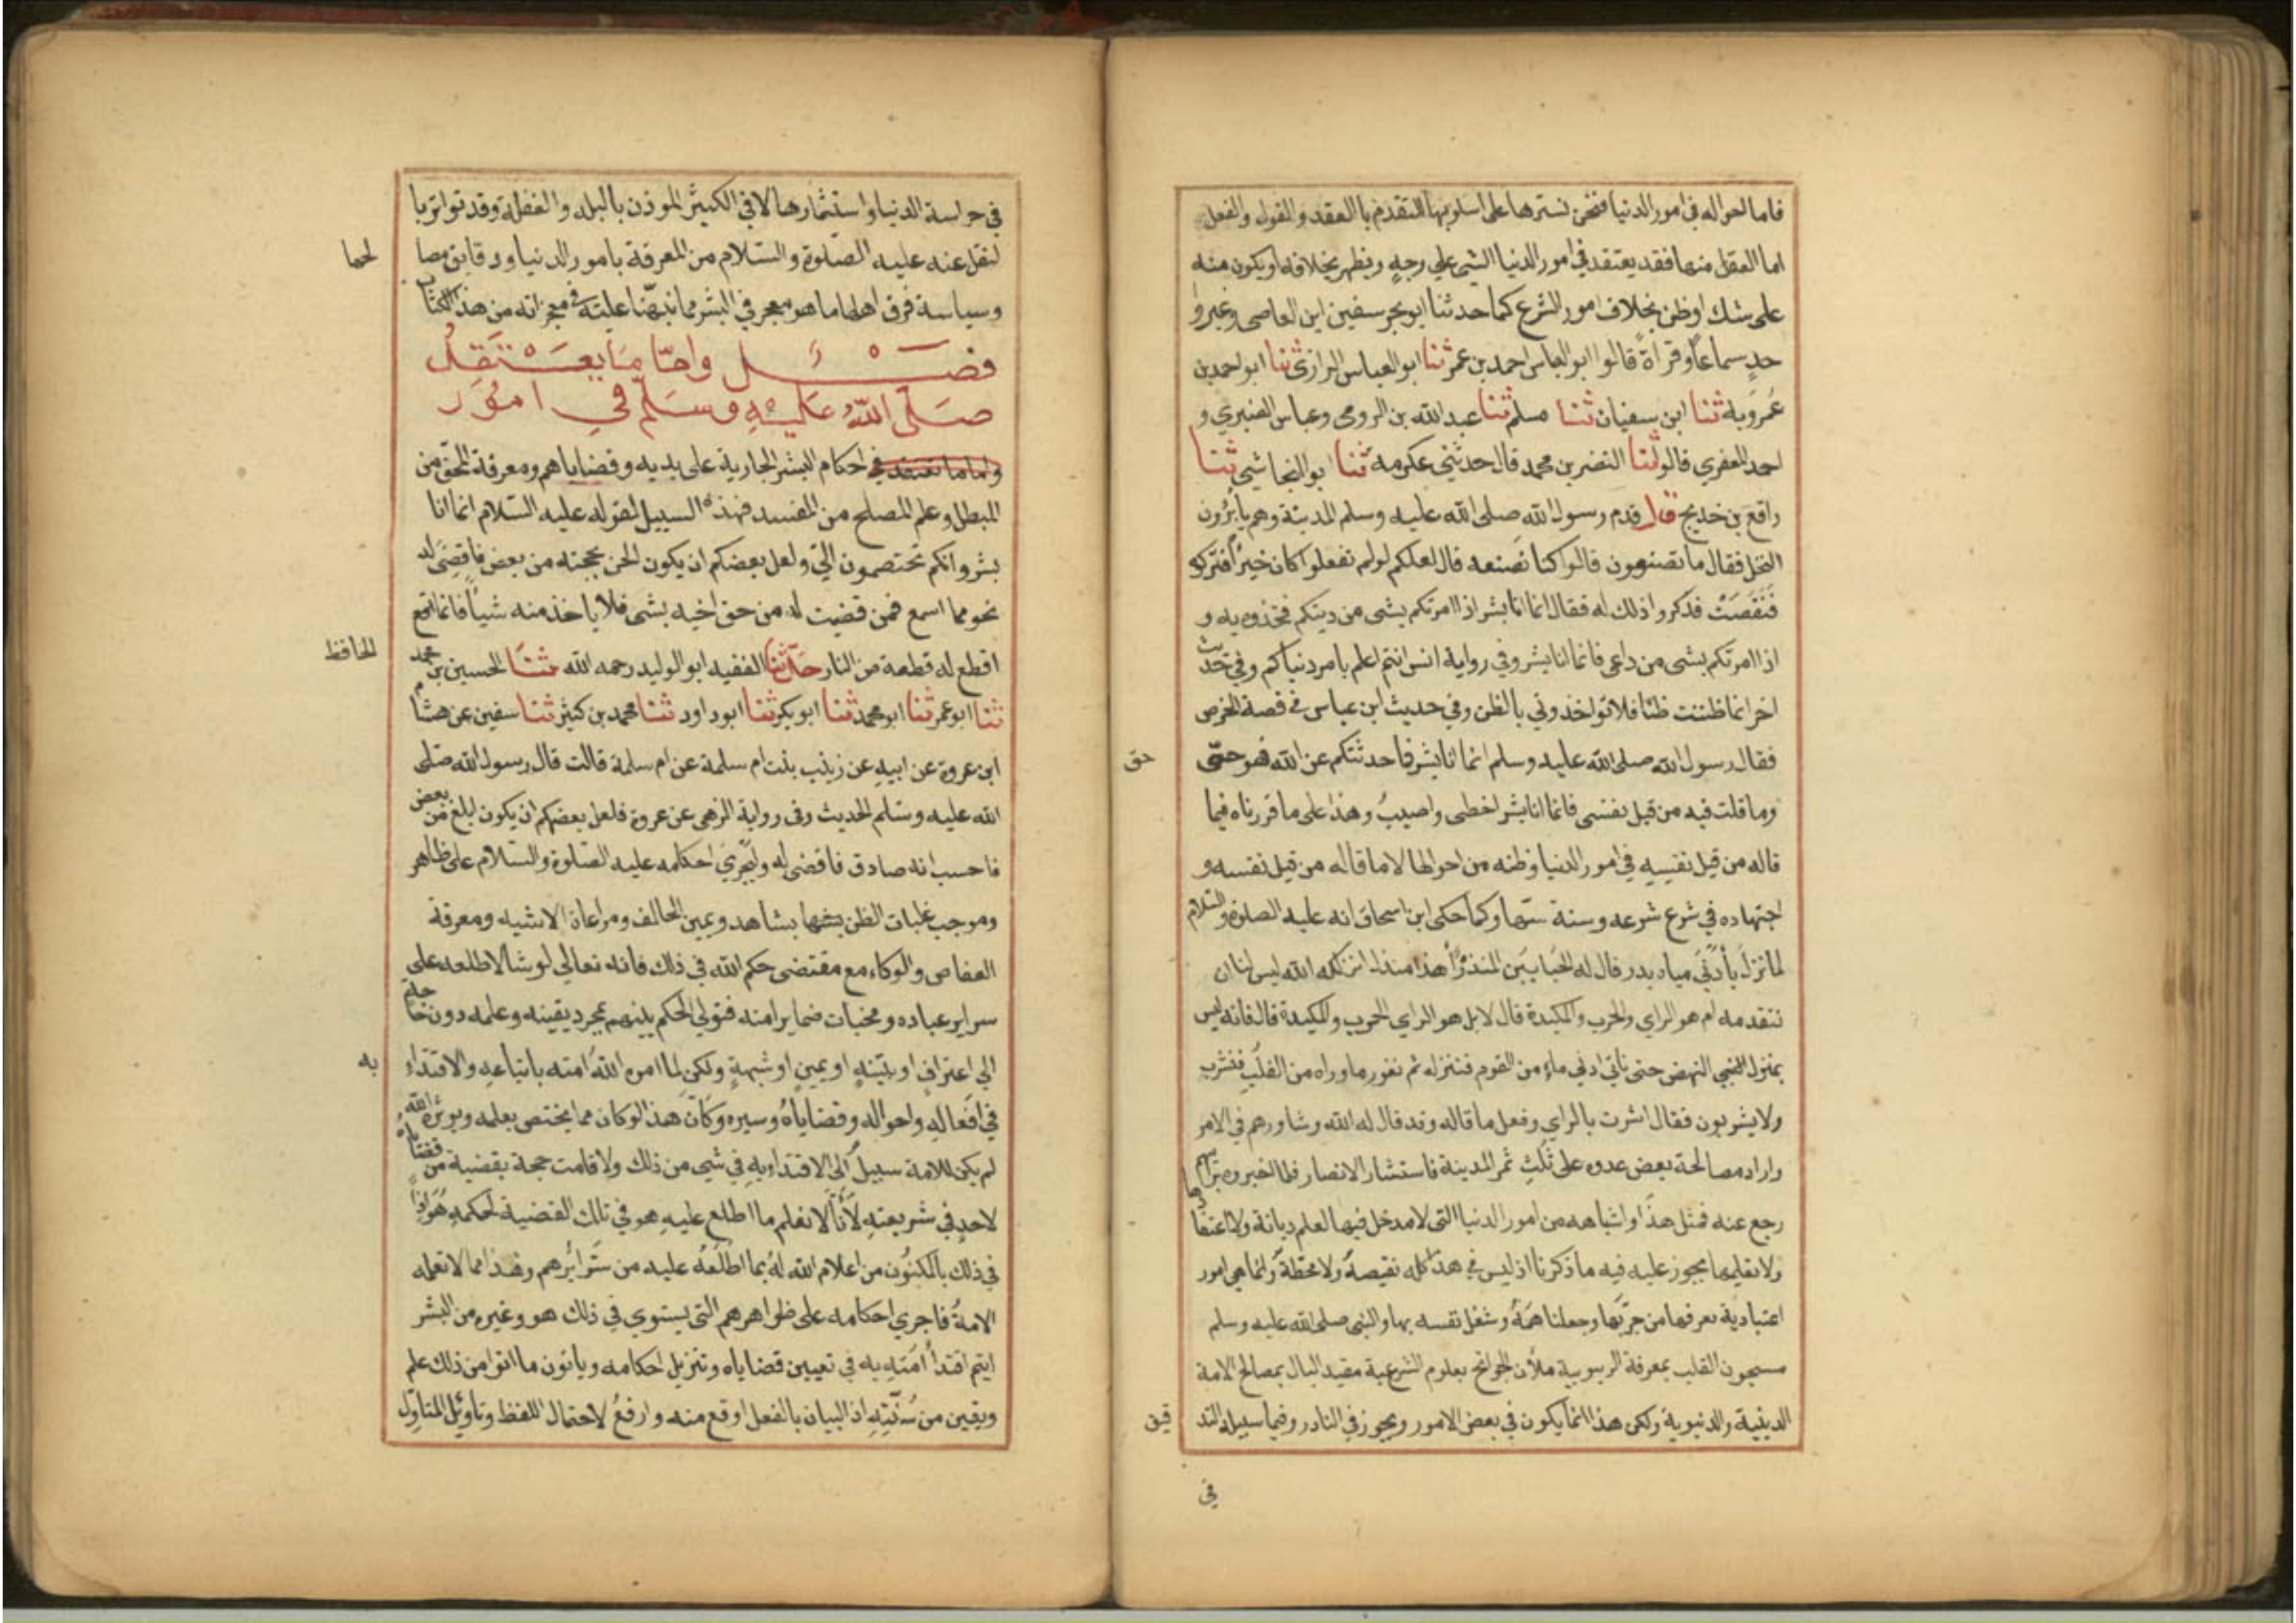 فاما احواله في امور الدنيا فنحن نسترها على اسلوبها المتقدم بالعقد والقول والفعل
اما العقل منها فقد يعتقد في امور الدنيا الشي علي وجهٍ ويظهر بخلافه او يكون منه
على شك او ظن بخلاف امور الشرع كما حدثنا ابو بحر سفين ابن العاصى وغير وا
حدٍ سماعًا وقراة قالوا ابو العباس احمد بن عمر ثنا ابو العباس الرازى ثنا ابو احمد بن
عُمرَوَية ثنا ابن سفيان ثنا مسلم ثنا عبد الله بن الرومى وعباس العنبري و
احمد المعقري قالو ثنا النضر بن محمد قال حدثني عكرمه ثنا ابو النجاشي ثنا
رافع بن خديج قال قدم رسول الله صلى الله عليه وسلم المدينة وهم يأبُرون
النخل فقال ما تصنعون قالوا كنا نصنعه قال لعلكم لو لم تفعلوا كان خيرًا فتركوه
فَنَقَصَتْ فذكروا ذلك له فقال انما انا بشر اذا امرتكم بشى من دينكم فخذوه به و
اذا امرتكم بشى من راءى فانما انا بشر وفي رواية انس انتم اعلم بامر دنياكم وفي حديث
اخر انما ظننت ظنًا فلا تواخذوني بالظن وفي حديث ابن عباس في قصة الخرص
فقال رسول الله صلى الله عليه وسلم انما انا بشر فما حدثتكم عن الله فهو حق
حق
وما قلت فيه من قبل نفسى فانما انا بشر اخطى واصيبُ وهذا على ما قررناه فيما
قاله من قبل نفسِهِ في امور الدنيا وظنه من احوالها لا ما قاله من قبل نفسه و
اجتهاده في شرع شرعه وسنة سنها وكما حكى ابن اسحاق انه عليه الصلوة والسّلام
لما نزل بأدنَى مياه بدر قال له الحُباب بن المنذر أهذا منذل انزلكه الله ليس لنا ان
نتقدمه ام هو الراي والحرب والمكيدة قال لا بل هو الراي الحرب والمكيدة قال فانه ليس
بمنزل انهض حتى ناتي ادنى ماءٍ من القوم فننزله ثم نغور ما وراه من القلُب فنشرب
ولا يشربون فقال اشرت بالراي وفعل ما قاله وقد قال له الله وشاورهم في الامر
واراد مصالحة بعض عدوه على ثُلُثِ ثمر المدينة فاستشار الانصار فلما اخبروه برايهم
رجع عنه فمثل هذا واشباهه من امور الدنيا التى لا مدخل فيها لعلم ديانة ولا اعتقادها
ولا تعليمها يجوز عليه فيه ما ذكرنا اذ ليس في هذا كله نقيصةٌ ولا محطةٌ وانما هي امور
اعتيادية نعرفها من جربها وجعلنا همّهُ وشغل نفسه بها والنبى صلى الله عليه وسلم
مسجون القلب بمعرفة الربوبية ملآن الجوانح بعلوم الشرعية مقيد البال بمصالح الامة
الدينية والدنيوية ولكن هذا انما يكون في بعض الامور ويجوز في النادر وفيما سبيله التد
قيق
في
في حراسة الدنيا واستثمارها لا في الكثير الموذن بالبله والغفلة وقد تواتر با
لنقل عنه عليه الصّلوة والسّلام من المعرفة بامور الدنيا ودقايق مصا
لحها
وسياسة فرق اهلها ما هو معجز في البشر مما نبهّنا عليه في معجزاته من هذا الكتاب
فصـــل وامّا ما يعتقد
صلّى اللهُ عليهِ وسلّم في امور
واما ما يعتقد في احكام البشر الجارية على يديه وقضاياهم ومعرفة المحق من
المبطل وعلم المصلح من المفسد فهذه السبيل لقوله عليه السّلام انما انا
بشر وانكم تختصمون اليّ ولعل بعضكم ان يكون الحن بحجته من بعض فاقضى له
نحو مما اسمع فمن قضيت له من حق اخيه بشى فلا ياخذ منه شيأ فانما
اقطع له قطعة من النار حدّثنا الفقيه ابو الوليد رحمه الله ثنا الحسين بن محمد
الحافظ
ثنا ابو عمر ثنا ابو محمد ثنا ابو بكر ثنا ابو داود ثنا محمد بن كثير ثنا سفين عن هشام
ابن عروة عن ابيه عن زينب بنت ام سلمة عن ام سلمة قالت قال رسول الله صلى
الله عليه وسلم الحديث وفي رواية الزهرى عن عروة فلعل بعضكم ان يكون ابلغ من بعض
فاحسب انه صادق فاقضى له ويُجري احكامه عليه الصّلوة والسّلام على ظاهر
وموجب غلبات الظن بشاهد ويمين الحالف ومراعاة الاشبه ومعرفة
العفاص والوكاء مع مقتضى حكم الله في ذلك فانه تعالي لو شا لاطلعه على
سراير عباده ومخبات ضماير امته فتولي الحكم بينهم بمجرد يقينه وعلمه دون حاجة
الي اعتراف او بيّنهٍ او يمينٍ او شبهةٍ ولكن لما امره اللهُ امته باتباعهِ والاقتداء
به
في افعاله واحواله وقضاياهُ وسيره وكان هذا لو كان مما يختص بعلمه ويوثره الله
لم يكن للامة سبيلٌ الى الاقتداء به في شي من ذلك ولا قامت حجة بقضية من قضاياه
لاحدٍ في شريعتهِ لأنّا لا نعلم ما اطلع عليهِ هو في تلك القضية لحكمهِ هو اذًا
في ذلك بالمكنُون من اعلام الله لهُ بما اطلَعَهُ عليه من سَرائرهم وهذا مما لا تعلمه
الامةُ فاجري احكامه على ظواهرهم التى يستوي في ذلك هو وغيره من البشر
ليتم اقتدأ امتهِ به في تعيين قضاياه وتنزيل احكامه وياتون ما اتوا من ذلك علي علم
ويقين من سُنّتِهِ اذ البيان بالفعل اوقع منه وارفعُ لاحتمال اللفظ وتأويْل المتاوّل